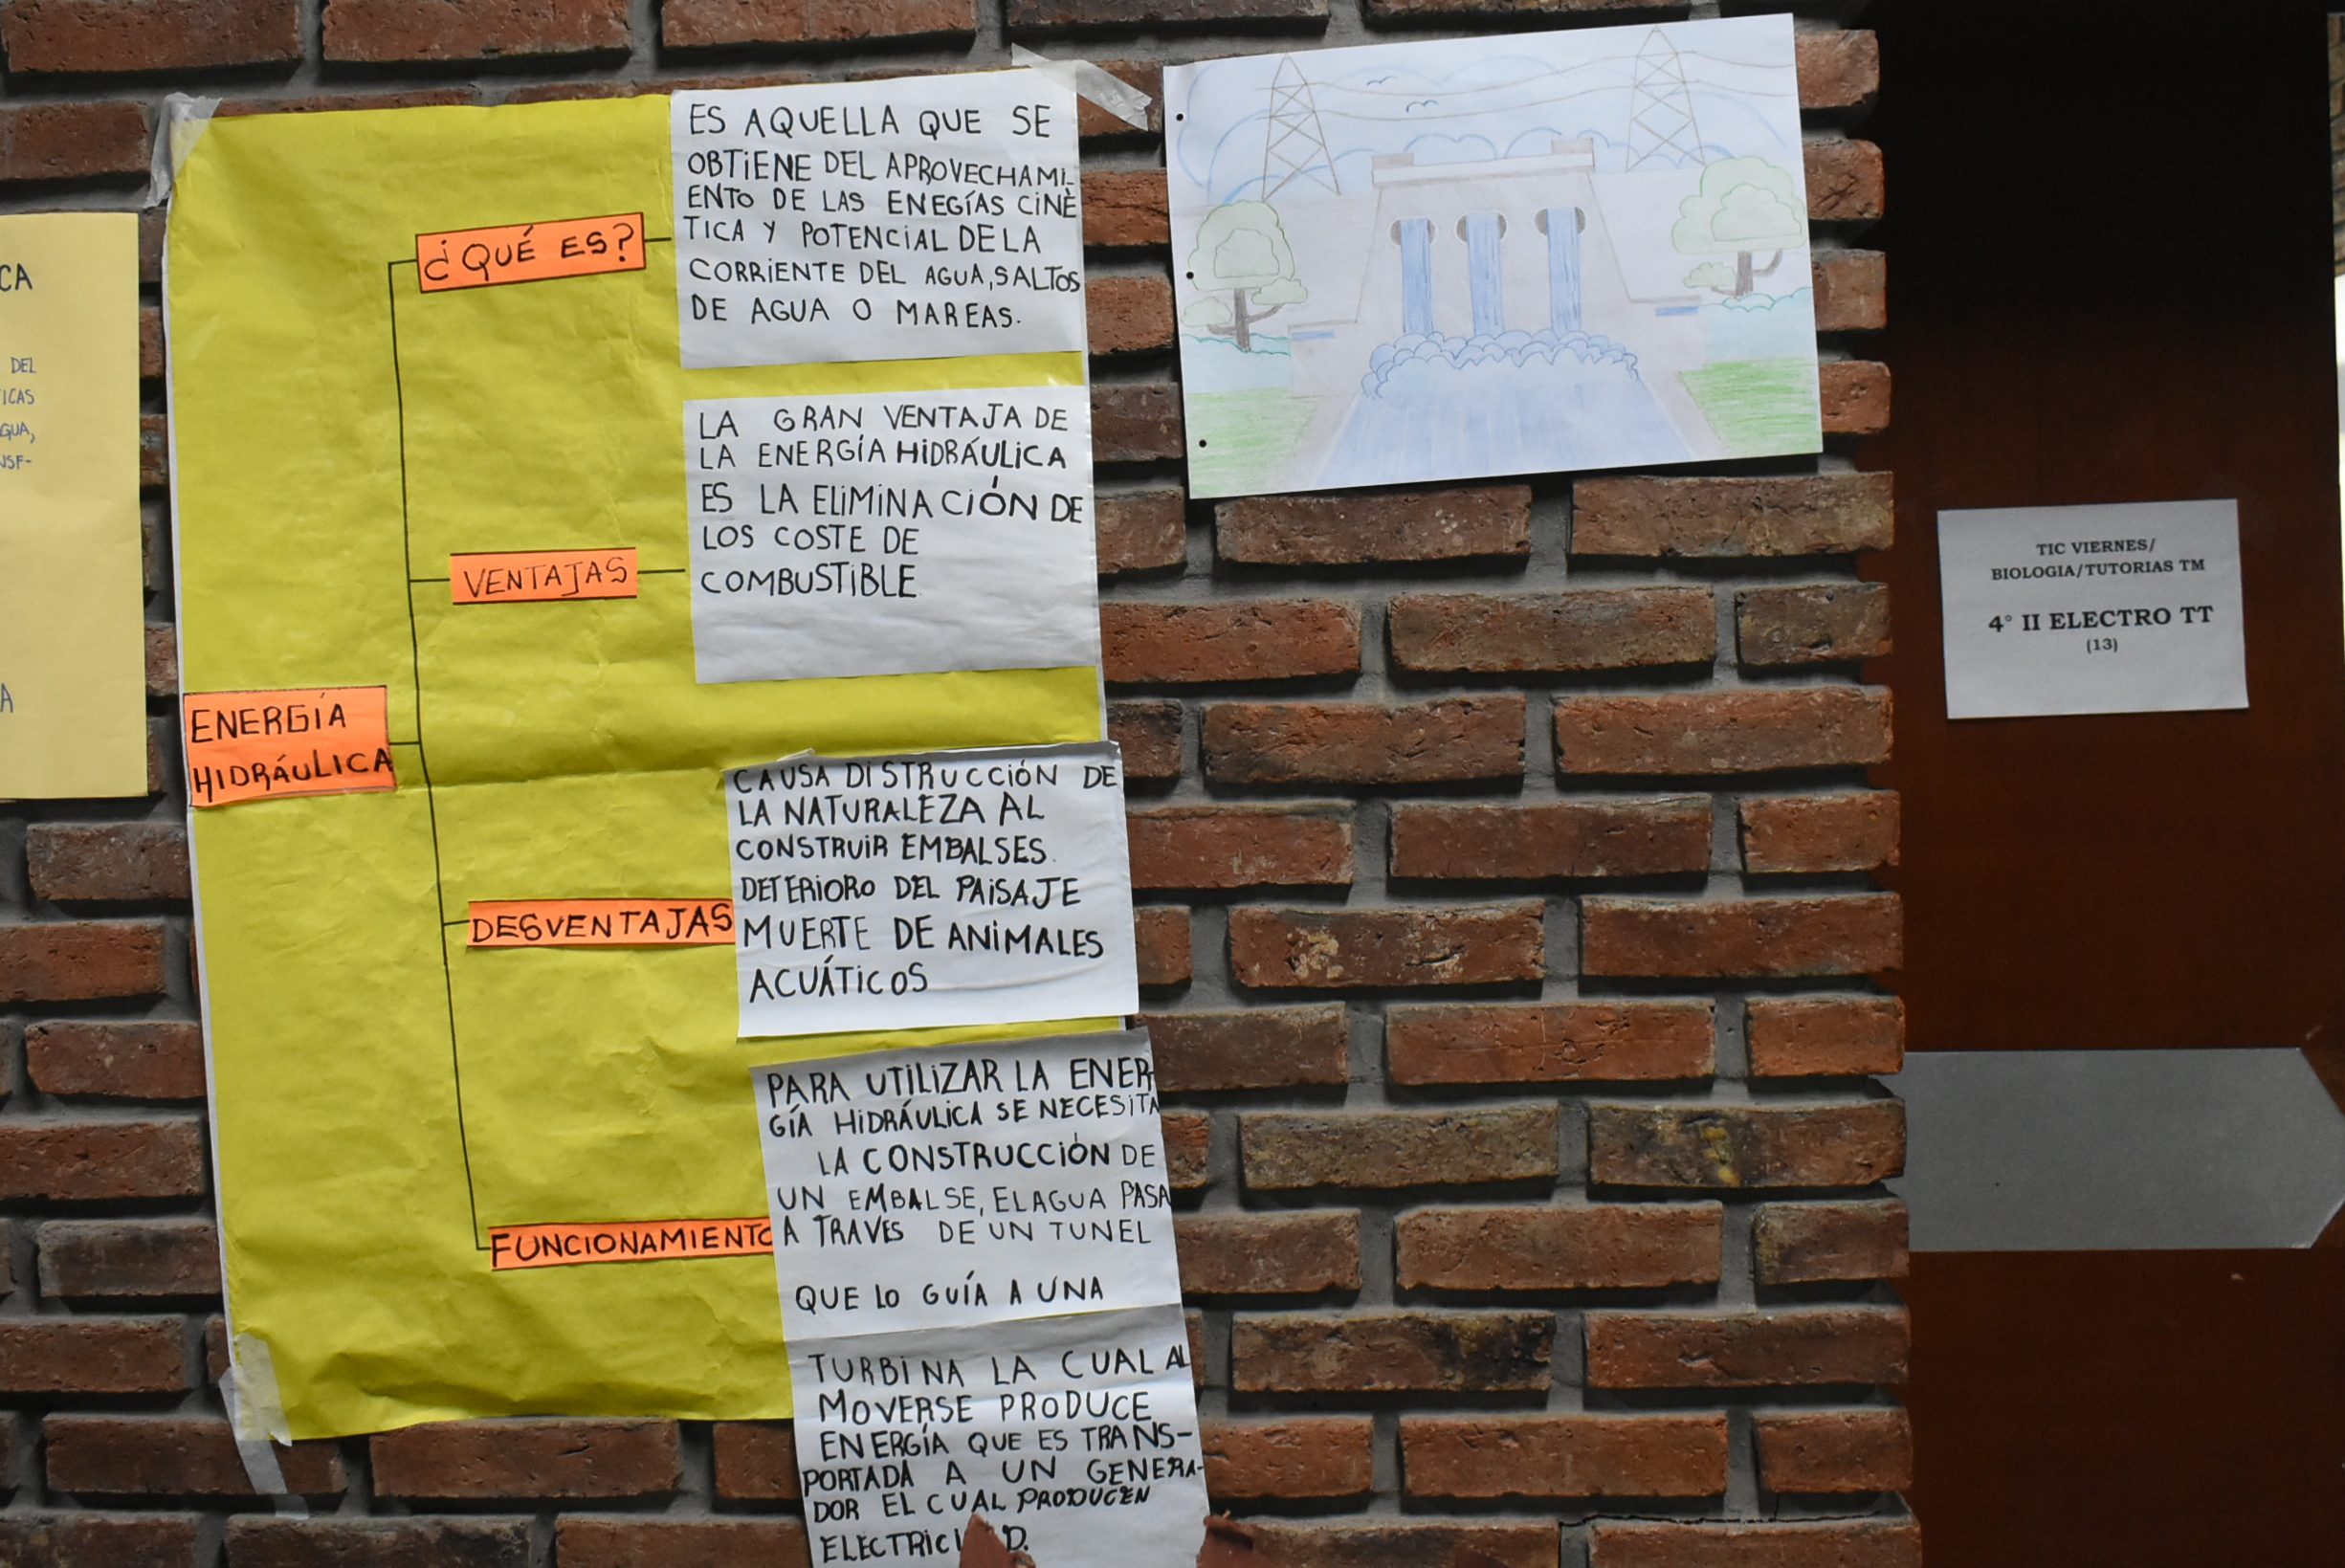 CA
DEL
TICAS
GUA,
NSF-
A
ENERGÍA
HIDRÁULICA
¿QUÉ ES?
ES AQUELLA QUE SE
OBTIENE DEL APROVECHAMI-
ENTO DE LAS ENEGÍAS CINÈ
TICA Y POTENCIAL DE LA
CORRIENTE DEL AGUA, SALTOS
DE AGUA O MAREAS.
VENTAJAS
LA GRAN VENTAJA DE
LA ENERGÍA HIDRÁULICA
ES LA ELIMINACIÓN DE
LOS COSTE DE
COMBUSTIBLE
DESVENTAJAS
CAUSA DISTRUCCIÓN DE
LA NATURALEZA AL
CONSTRUIR EMBALSES.
DETERIORO DEL PAISAJE
MUERTE DE ANIMALES
ACUÁTICOS
FUNCIONAMIENTO
PARA UTILIZAR LA ENER-
GÍA HIDRÁULICA SE NECESITA
LA CONSTRUCCIÓN DE
UN EMBALSE, EL AGUA PASA
A TRAVES DE UN TUNEL
QUE LO GUÍA A UNA
TURBINA LA CUAL AL
MOVERSE PRODUCE
ENERGÍA QUE ES TRANS-
PORTADA A UN GENERA-
DOR EL CUAL PRODUCEN
ELECTRICIDAD.
TIC VIERNES/
BIOLOGIA/TUTORIAS TM
4° II ELECTRO TT
(13)